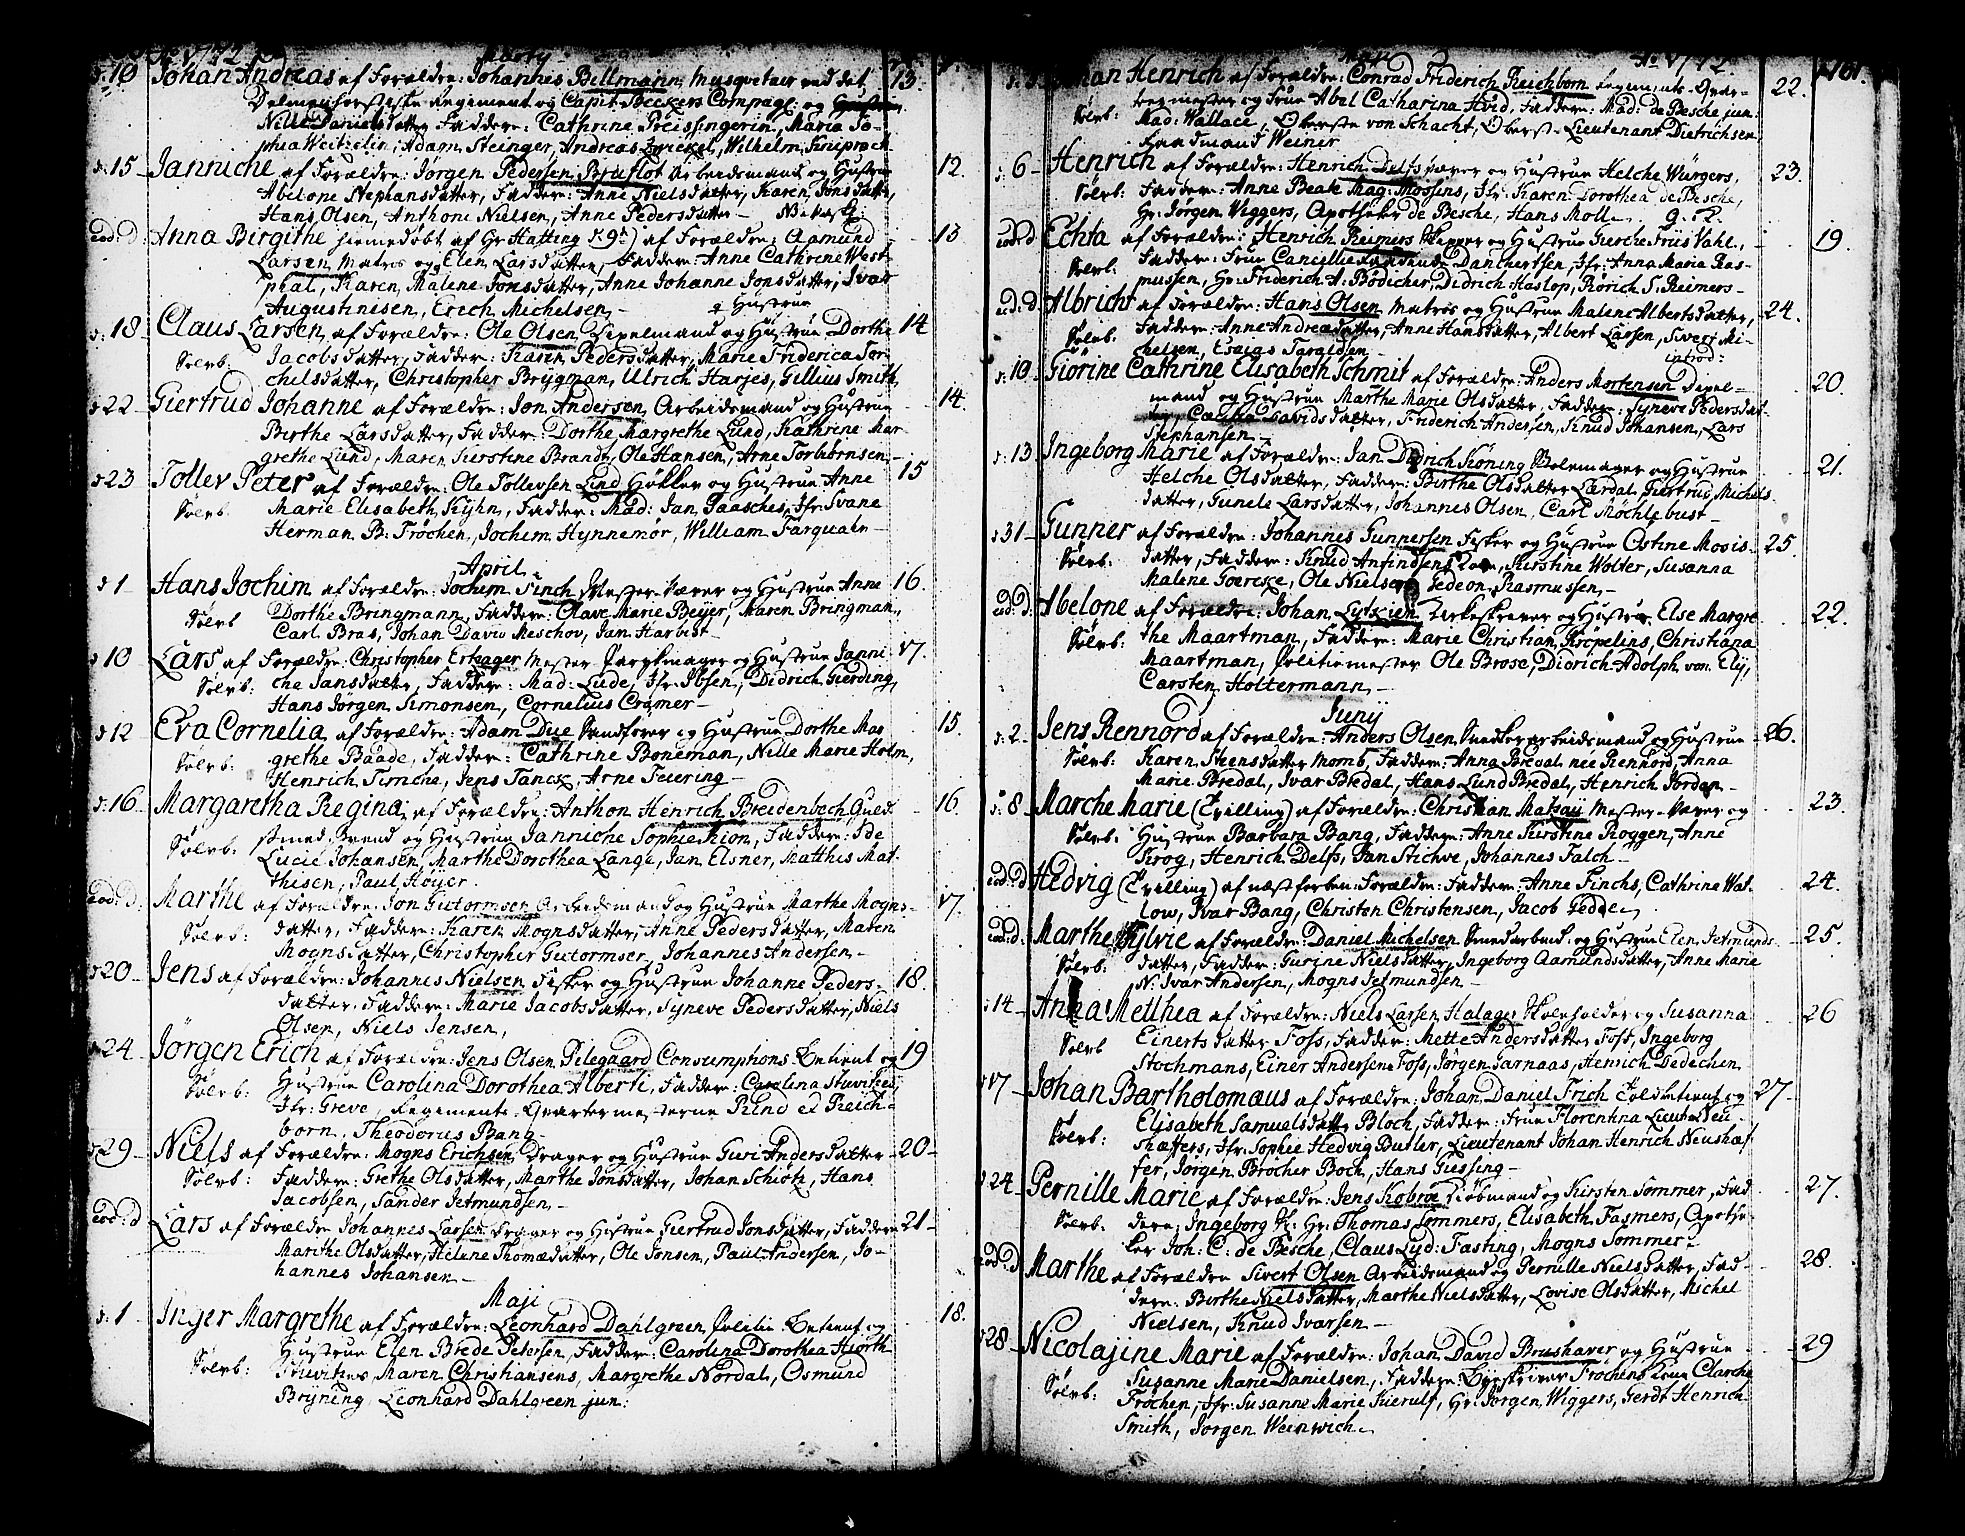 1772
Marty
d: 10 Johan Andreas af Forældre: Johannes Billmann Musqveteur ved det 13.
Delmenhorstiske Regiment og Capit: Beckers Compagn: og
Nille Danielsdatter Faddere: Cathrine Preissingerin, Maria So-
phia Weitzelin, Adam Steinger, Andreas Zwickel, Wilhelm Knieproch
d: 15 Janniche af Forældre: Jørgen Pedersen Bruflot Arbeidsmand og Hustrue 12.
Abelone Stephansdatter, Faddere: Anne Nielsdatter, Karen Jonsdatter,
Hans Olsen, Anthoni Nielsen, Anne Pedersdatter
eod: d: Anna Birgithe hiemedøbt af Hr Hatting d. 9de) af Forældre: Aamund 13
Larsen Matros og Elen Larsdatter, Faddere: Anne Cathrine West-
phal, Karen, Malene Jonsdatter, Anne Johanne Jonsdatter, Ivar
Augustinisen, Erich Michelsen
d: 18 Claus Larsen af Forældre: Ole Olsen Sepelmand og Hustrue Dorthe 14
Sølvb. Jacobsdatter, Faddere: Karen Pedersdatter, Marie Friderica Tor-
chelsdatter, Christopher Brÿgman, Ulrich Harjes, Gillius Smith
d 22 Giertrud Johanne af Forældre: Jon Andersen Arbeidsmand og Hustrue 14.
Birthe Larsdatter, Faddere: Dorthe Margrethe Lund, Kathrine Mar-
grethe Lund, Maren Kierstine Brandt, Ole Hansen, Arne Torbiørnsen
d 23 Tollev Peter af Forældre: Ole Tollevsen Lind Høkker og Hustrue Anne 15
Sølvb. Marie Elisabeth Kÿhn, Faddere: Mad: Jan Paasches, Jfr: Svane
Herman B: Frøchen, Jochem Hynnemør, William Farquain
April
d 1 Hans Jochim af Forældre: Jochim Finch Mester Væver og Hustrue Anne 16.
Sølvb Dorthe Bringmann, Faddere: Olave Marie Beÿer, Maren Bringman,
Carl Bras, Johan David Meschov, Jan Harbist
d 10 Lars af Forældre: Christopher Ertzager Mester Parykmager og Hustrue Janni 17.
Sølvb: che Jansdatter, Faddere: Mad: Lude, Jfr: Ibsen, Didrich Gierding,
Hans Jørgen Simonsen, Cornelius Cramer
d 12 Eva Cornelia af Forældre: Adam Due Sandfører og Hustrue Dorthe Mar 15.
Sølvb: grethe Baade, Faddere: Cathrine Boneman, Nille Marie Holm,
Henrich Timche, Jens Tanck, Arne Seiering
d: 16 Margaretha Regina af Forældre: Anthon Henrich Breidenbech Guld 16.
Sølvb: smed Svend og Hustrue Janniche Sophie Thion, Faddere: Ide
Lucie Johansen, Marthe Dorothea Lange, Jan Elsner, Matthis Mat-
thisen, Paul Høÿer.
eod: d: Marthe af Forældre: Jon Gutormsen Arbeidsmand og Hustrue Marthe Mogns- 17.
Sølvb: datter, Faddere: Karen Mognsdatter, Anne Pedersdatter, Maren
Mognsdatter, Christopher Gutormsen, Johannes Andersen
d 20 Jens af Forældre: Johannes Nielsen Fisker og Hustrue Johanne Peders- 18.
datter, Faddere: Marie Jacobsdatter, Syneve Pedersdatter, Niels
Olsen, Niels Jensen,
d 24 Jørgen Erich af Forældre: Jens Olsen Pilegaard Consumptions Betient og 19
Sølvb: Hustrue Carolina Dorothea Alberti, Faddere: Carolina
Jfr: Greve, Regiments Qvartermesterne Rind et Reich-
born, Theodorus Bang
d 29 Niels af Forældre: Mogns Erichsen Drager og Hustrue Guri Andersdatter 20
Sølvb: Faddere: Grethe Olsdatter, Marthe Jonsdatter, Johan Schiøtz, Hans
Jacobsen, Sander Jetmundsen
eod: d Lars af Forældre Johannes Larsen Drager og Hustrue Giertrud Jonsdatter, Faddere 21
Marthe Olsdatter, Helene Thomædatter, Ole Jonsen, Paul Andersen, Jo-
hannes Johansen
Maji
d: 1 Inger Margrethe af Forældre: Leonhard Dahlgreen Politie Betient og 18.
Sølvb: Hustrue Elen Brede Petersen, Faddere: Carolina Dorothea Hiorth
Maren Christiansens, Margrethe Nordal, Osmund
Brÿning, Leonhard Dahlgreen jun:
161.
Johan Henrich af Forældre: Conrad Friderich Reichborn Regiments Qvar- 22.
Sølvb: termester og Frue Abel Catharina Hvid, Faddere: Mad: de Besche jun:
Mad: Wallace, Oberste von Schacht, Oberst-Lieutenant Dietrichsen
Raadmand Weiner
d: 6 Henrich af Forældre: Henrich Delfs Væver og Hustrue Helche Würgers, 23.
Sølvb: Faddere: Anne Beate Mag: Mossens, Jfr: Karen Dorothea de Besche,
Hr: Jørgen Wiggers, Apotheker de Besche, Hans Moll
eod: d Echta af Forældre: Henrich Reimers Skipper og Hustrue Gierche Friis Vahl, 19.
Sølvb: Faddere: Frue Cancellieraadinde Danchertsen, Jfr: Anna Maria Ras-
mussen, Hr: Friderich A: Bødicher, Didrich Haslop, Rørich S: Reimers
eod: d Albricht af Forældre: Hans Olsen Matros og Hustrue Malene Albertsdatter, 24.
Sølvb: Faddere: Anne Andreadatter, Anne Hansdatter, Albert Larsen, Sivert Mi-
chelsen, Esaias Taraldsen
introd:
d: 10 Giørine Cathrine Elisabeth Schmit af Forældre: Anders Mortensen Sepel- 20.
mand og Hustrue Marthe Marie Olsdatter, Faddere: Syneve Pedersdat-
ter, Cæcilia Davidsdatter, Friderich Andersen, Knud Johansen, Lars
Stephansen
d: 13 Ingeborg Marie af Forældre: Jan Didrich Køning Bolemager og Hustrue 21.
Helche Olsdatter, Faddere: Birthe Olsdatter Lærdal, Giertrud Michels
datter, Gunele Larsdatter, Johannes Olsen, Carl Møchlebust
d 31 Gunner af Forældre: Johannes Gunnersen Fisker og Hustrue Ostine Mosis- 25.
Sølvb: datter, Faddere: Knud Anfindsens Kone, Kirstine Wolter, Susanna
Malene Goercke, Ole Nielsen, Gedeon Rasmussen
eod: d. Abelone af Forældre: Johan Lytzien Kirkeskriver og Hustrue Else Margre 22.
Sølvb: the Maartman, Faddere: Marie Christian Kropelins, Christiana
Maartman, Politiemester Ole Brose, Didrich Adolph von Elÿ,
Carsten Holtermann
Junÿ
d: 2 Jens Rennord af Forældre: Anders Olsen Snedker arbeidsmand og Hustrue 26.
Sølvb: Karen Steensdatter Momb, Faddere: Anna Bredal née Rennord, Anna
Marie Bredal, Ivar Bredal, Hans Lund Bredal, Henrich Jordan
d: 8 Marche Marie (Tvilling) af Forældre: Christian Matzaÿ Mester Væver og 23.
Sølvb: Hustrue Barbara Bang, Faddere: Anne Kirstine Roggen, Anne
Krog, Henrich Delfs, Jan Stichve, Johannes Falch
eod: d Hedvig (Tvilling) af næstforben: Forældre: Faddere: Anne Finchs, Cathrine Wal- 24.
low, Ivar Bang, Christen Christensen, Jacob Gedde
eod: d: Marthe Sylvie af Forældre: Daniel Michelsen Smedarbeid: og Hustrue Elen Jetmunds 25.
Sølvb: datter, Faddere: Gurine Nielsdatter, Ingeborg Aamundsdatter, Anne Marie
N: Ivar Andersen, Mogns Jetmundsen
d 14 Anna Metthea af Forældre: Niels Larsen Halager Skoleholder og Susanna 26
Sølvb Einertsdatter Foss, Faddere: Mette Andersdatter Foss, Ingeborg
Stochmans, Einer Andersen Foss, Jørgen Garnaas, Henrich Dedechen
d 17 Johan Bartholomæus af Forældre: Johan Daniel Frich Toldbetient og 27
Sølvb: Elisabeth Samuelsdatter Bloch, Faddere: Frue Florentina Lieut: Neu-
shaffers, Jfr: Sophie Hedvig Butler, Lieutenant Johan Henrich Neushaf
fer, Jørgen Brøcher Boch, Hans Giessing
d 24 Pernille Marie af Forældre: Jens Kobroe Kiøbmand og Kirsten Sommer, Fad 27.
Sølvb: dere: Ingeborg Hr: Thomas Sommers, Elisabeth Fasmers, Apothe-
ker Joh: C: de Besche, Claus Lyd: Fasting, Mogns Sommer
eod: d Marthe af Forældre Sivert Olsen Arbeidsmand og Pernille Nielsdatter, Fad- 28.
dere: Birthe Nielsdatter, Marthe Nielsdatter, Lovise Olsdatter, Michel
Nielsen, Knud Ivarsen
d 28 Nicolajine Marie af Forældre: Johan David Brushaver og Hustrue 29
Sølvb: Susanne Marie Danielsen, Faddere: Byeskriver Frøchens Kone Clarche
Frøchen, Jfr: Susanne Marie Kierulf, Hr: Jørgen Wiggers, Gerdt Henrich
Smith, Jørgen Weinwich